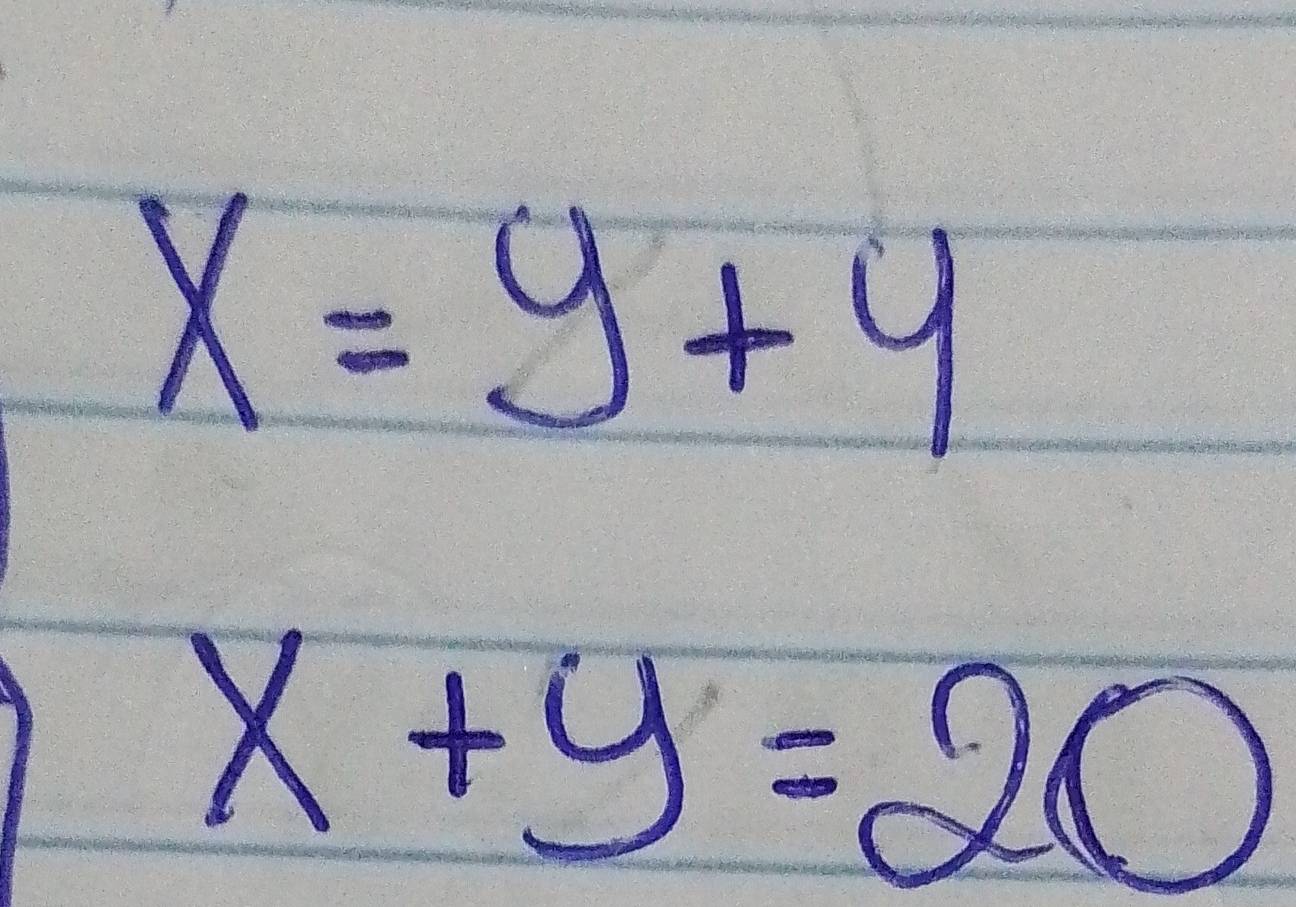 x = y + 4
x + y = 20